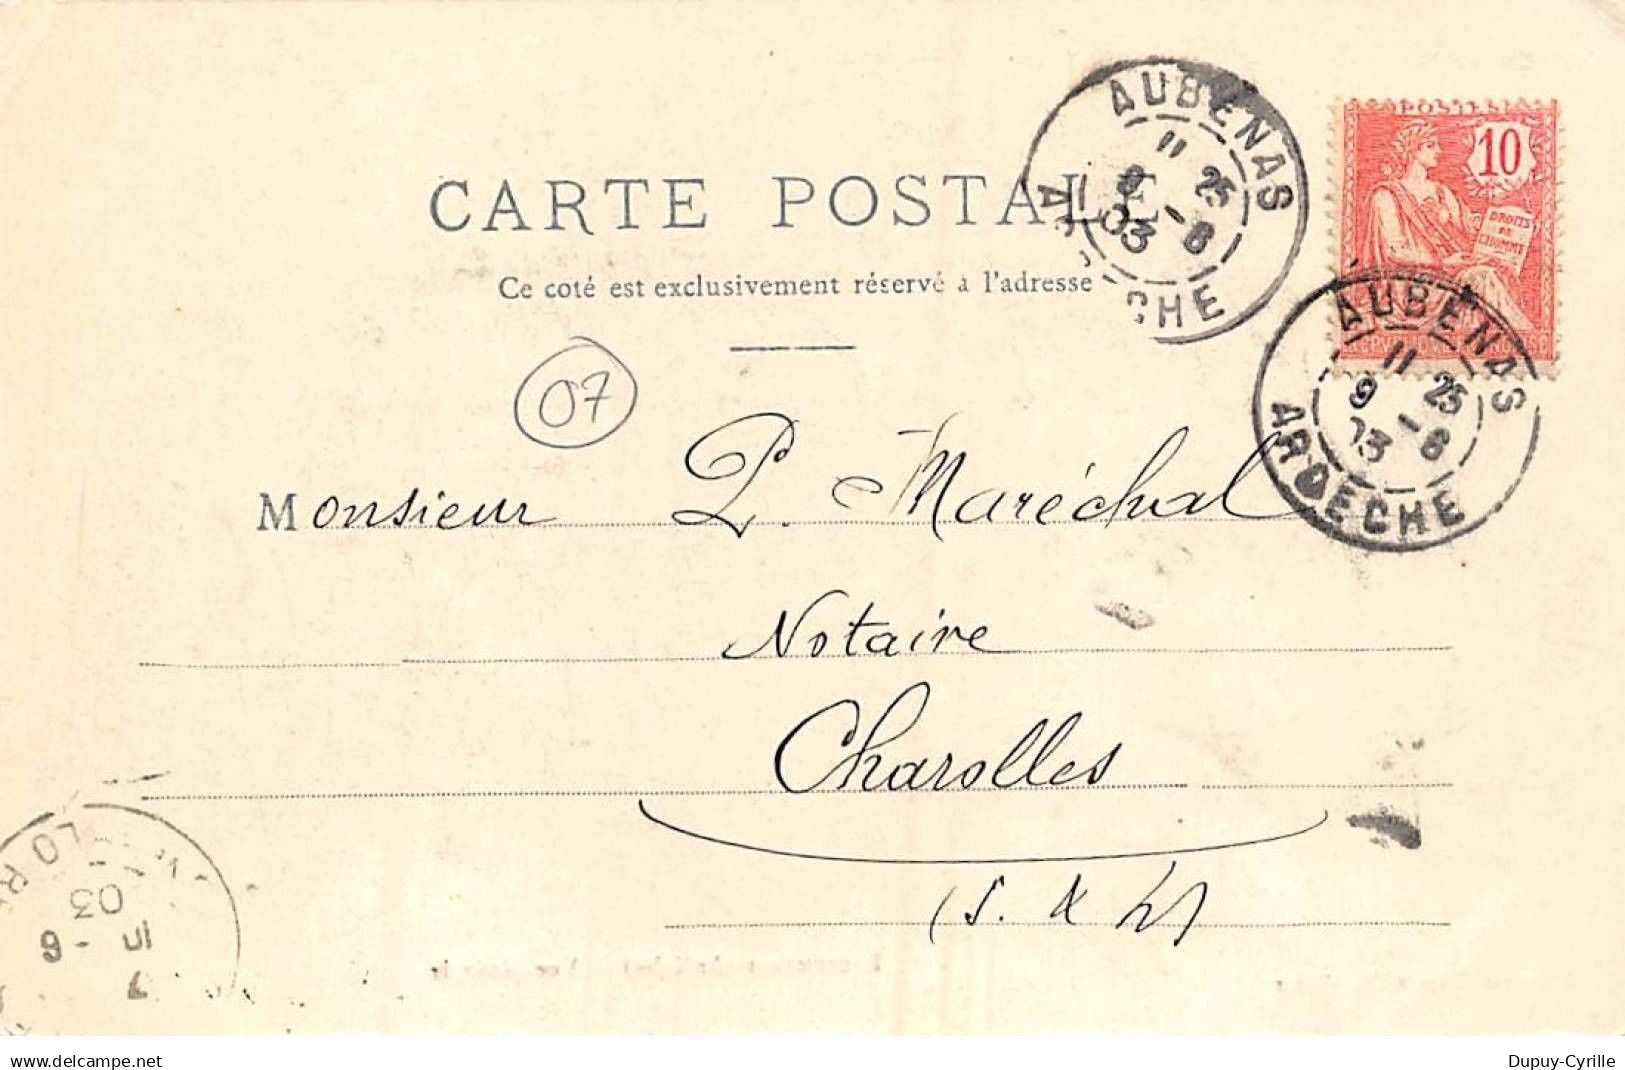 CARTE POSTALE
Ce coté est exclusivement réservé à l'adresse
POSTES
10
DROITS
DE
L'HOMME
AUBENAS
11 25
9 - 6
03
ARDECHE
AUBENAS
11 25
9 - 6
03
ARDECHE
07
Monsieur P. Maréchal
Notaire
Charolles
(S. & L)
03
15 - 6
delcampe.net
Dupuy-Cyrille